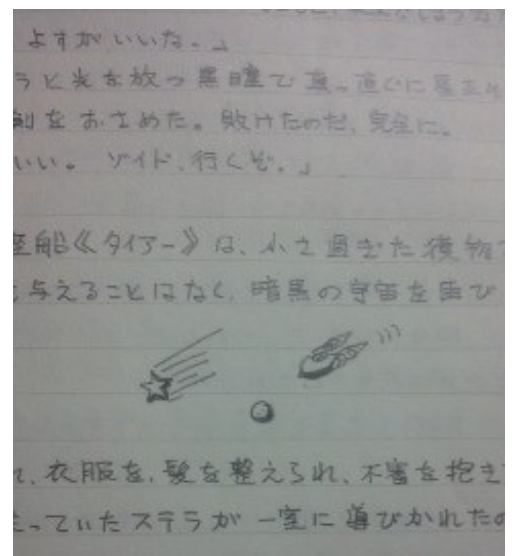 よすがいいな。」
うと光を放つ黒瞳で真っ直ぐに
剣をおさめた。敗けたのだ、完全に。
いい。 ゾイド、行くぞ。」
座船《タイアー》は、小さ過ぎた獲物
与えることはなく、暗黒の宇宙を
れ、衣服を、髪を整えられ、不審を抱き
っていたステラが一室に導びかれたの